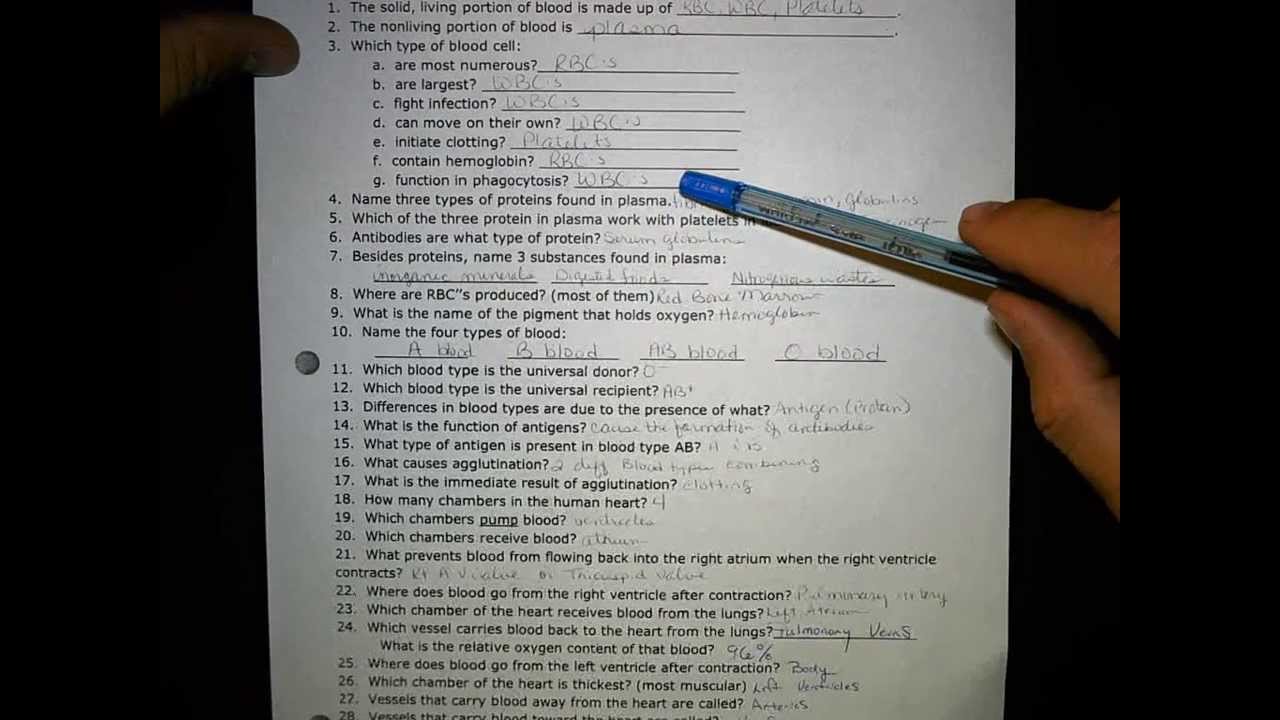 1. The solid, living portion of blood is made up of RBC, WBC, Platelets.
2. The nonliving portion of blood is plasma.
3. Which type of blood cell:
a. are most numerous? RBC's
b. are largest? WBC's
c. fight infection? WBC's
d. can move on their own? WBC's
e. initiate clotting? Platelets
f. contain hemoglobin? RBC's
g. function in phagocytosis? WBC's
4. Name three types of proteins found in plasma. globulins
5. Which of the three protein in plasma work with platelets in
6. Antibodies are what type of protein? Serum globulins
7. Besides proteins, name 3 substances found in plasma:
inorganic minerals Digested foods Nitrogenous wastes
8. Where are RBC"s produced? (most of them) Red Bone Marrow
9. What is the name of the pigment that holds oxygen? Hemoglobin
10. Name the four types of blood:
A blood B blood AB blood O blood
11. Which blood type is the universal donor? O-
12. Which blood type is the universal recipient? AB+
13. Differences in blood types are due to the presence of what? Antigen (Protein)
14. What is the function of antigens? cause the formation of antibodies
15. What type of antigen is present in blood type AB? A
16. What causes agglutination? 2 diff Blood types combining
17. What is the immediate result of agglutination? clotting
18. How many chambers in the human heart? 4
19. Which chambers pump blood? ventricles
20. Which chambers receive blood? atrium
21. What prevents blood from flowing back into the right atrium when the right ventricle
contracts? Rt A V valve or Tricuspid valve
22. Where does blood go from the right ventricle after contraction? Pulmonary artery
23. Which chamber of the heart receives blood from the lungs? Left Atrium
24. Which vessel carries blood back to the heart from the lungs? Pulmonary Veins
What is the relative oxygen content of that blood? 96%
25. Where does blood go from the left ventricle after contraction? Body
26. Which chamber of the heart is thickest? (most muscular) Left Ventricles
27. Vessels that carry blood away from the heart are called? Arteries
28. Vessels that carry blood toward the heart are called?